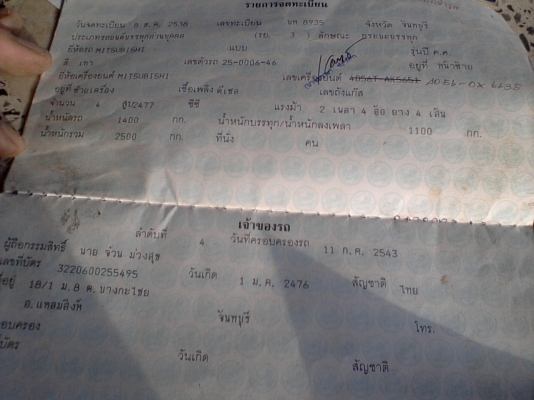 รายการจดทะเบียน
วันจดทะเบียน 8 ส.ค. 2538 เลขทะเบียน บท 8935 จังหวัด จันทบุรี
ประเภทรถยนต์บรรทุกส่วนบุคคล (รย. 3 ) ลักษณะ กระบะบรรทุก
ยี่ห้อรถ MITSUBISHI แบบ รุ่นปี ค.ศ.
สี เทา เลขตัวรถ 25-0006-46 อยู่ที่ หน้าซ้าย
ยี่ห้อเครื่องยนต์ MITSUBISHI เลขเครื่องยนต์
อยู่ที่ ซ้ายเครื่อง เชื้อเพลิง ดีเซล เลขถังแก๊ส
จำนวน 4 สูบ2477 ซีซี แรงม้า 2 เพลา 4 ล้อ ยาง 4 เส้น
น้ำหนักรถ 1400 กก. น้ำหนักบรรทุก/น้ำหนักลงเพลา 1100 กก.
น้ำหนักรวม 2500 กก. ที่นั่ง คน
เจ้าของรถ
ลำดับที่ 4 วันที่ครอบครองรถ 11 ก.ค. 2543
ผู้ถือกรรมสิทธิ์ นาย จ้วน ม่วงสุข
เลขที่บัตร 3220600255495 วันเกิด 1 ม.ค. 2476 สัญชาติ ไทย
ที่อยู่ 18/1 ม.8 ต.บางกะไชย
อ.แหลมสิงห์ จันทบุรี โทร.
ครอบครอง
บัตร วันเกิด สัญชาติ